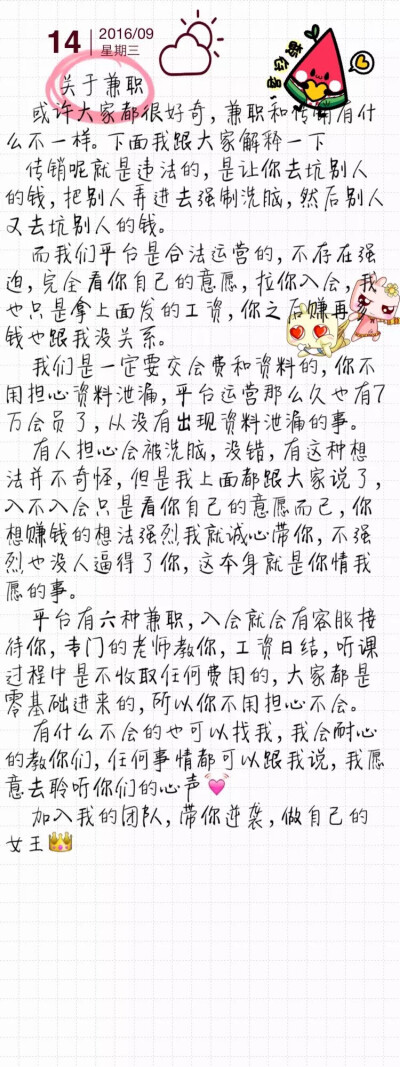 14
2016/09
星期三
关于兼职
或许大家都很好奇,兼职和传销有什
么不一样。下面我跟大家解释一下
传销呢就是违法的,是让你去坑别人
的钱,把别人弄进去强制洗脑,然后别人
又去坑别人的钱。
而我们平台是合法运营的,不存在强
迫,完全看你自己的意愿,拉你入会,我
也只是拿上面发的工资,你之后赚再多
钱也跟我没关系。
我们是一定要交会费和资料的,你不
用担心资料泄漏,平台运营那么久也有7
万会员了,从没有出现资料泄漏的事。
有人担心会被洗脑,没错,有这种想
法并不奇怪,但是我上面都跟大家说了,
入不入会只是看你自己的意愿而已,你
想赚钱的想法强烈我就诚心带你,不强
烈也没人逼得了你,这本身就是你情我
愿的事。
平台有六种兼职,入会就会有客服接
待你,专门的老师教你,工资日结,听课
过程中是不收取任何费用的,大家都是
零基础进来的,所以你不用担心不会。
有什么不会的也可以找我,我会耐心
的教你们,任何事情都可以跟我说,我愿
意去聆听你们的心声💓
加入我的团队,带你逆袭,做自己的
女王👑